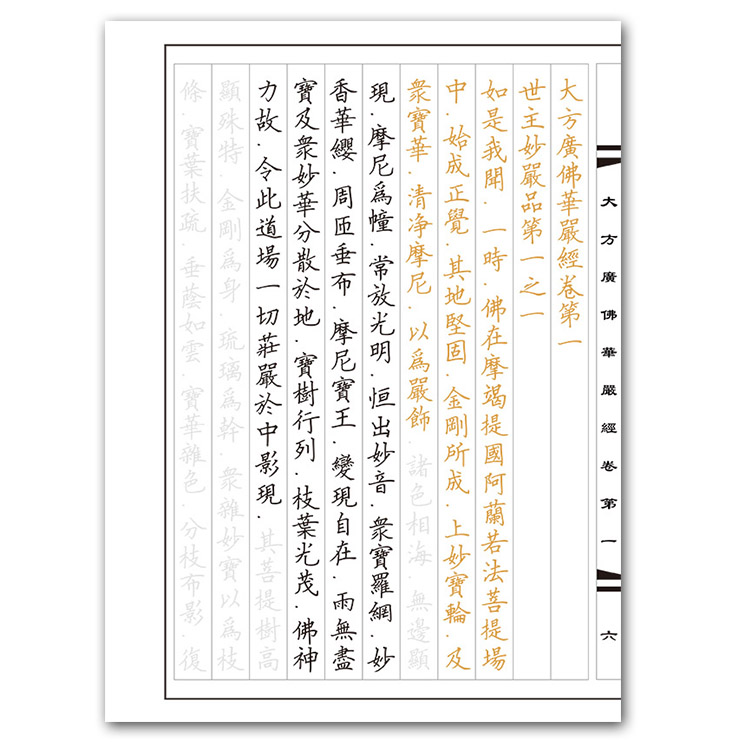 大方廣佛華嚴經卷第一
六
大方廣佛華嚴經卷第一
世主妙嚴品第一之一
如是我聞.一時.佛在摩竭提國阿蘭若法菩提場
中.始成正覺.其地堅固.金剛所成.上妙寶輪.及
眾寶華.清淨摩尼.以為嚴飾.諸色相海.無邊顯
現.摩尼為幢.常放光明.恒出妙音.眾寶羅網.妙
香華纓.周匝垂布.摩尼寶王.變現自在.雨無盡
寶及眾妙華分散於地.寶樹行列.枝葉光茂.佛神
力故.令此道場一切莊嚴於中影現.其菩提樹高
顯殊特.金剛為身.琉璃為幹.眾雜妙寶以為枝
條.寶葉扶疏.垂蔭如雲.寶華雜色.分枝布影.復